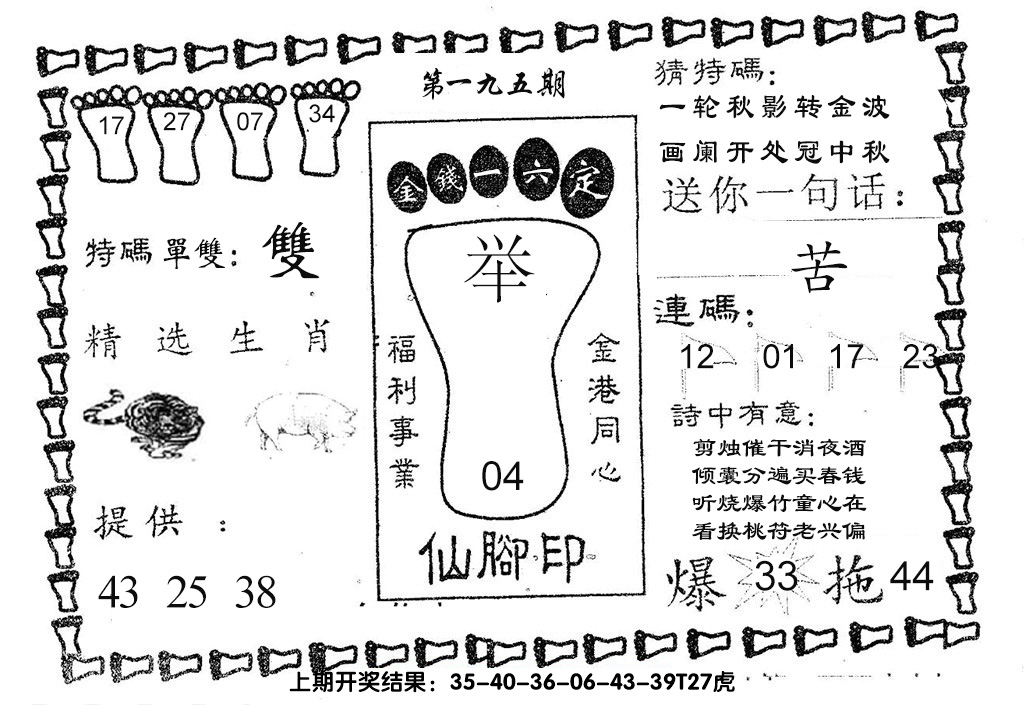 17 27 07 34
特碼單雙：雙
精选生肖
提供：
43 25 38
第一九五期
金錢一六定
举
福利事業
金港同心
04
仙腳印
猜特碼：
一轮秋影转金波
画阑开处冠中秋
送你一句话：
苦
連碼：
12 01 17 23
詩中有意：
剪烛催干消夜酒
倾囊分遍买春钱
听烧爆竹童心在
看换桃符老兴偏
爆 33 拖 44
上期开奖结果：35-40-36-06-43-39T27虎